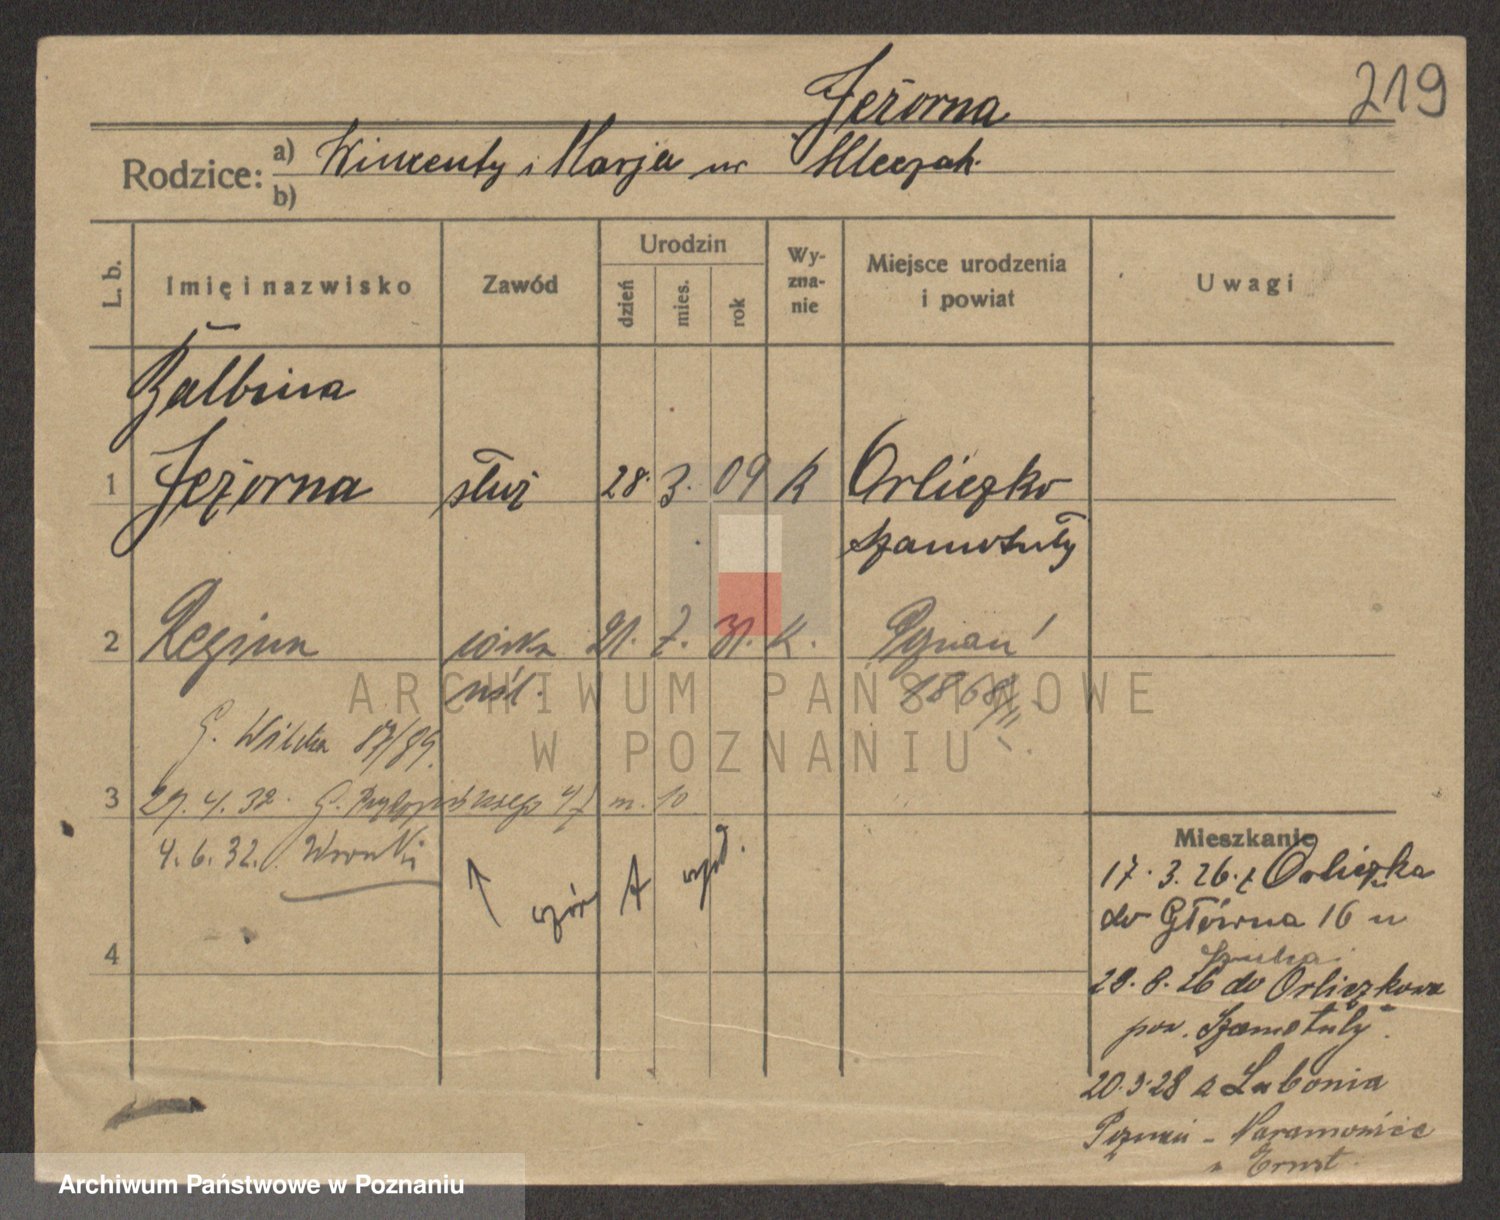 219
Jeżorna
Rodzice: a) Wincenty i Marja ur Mleczak
b)
L. b.
Imię i nazwisko
Zawód
Urodzin
dzień
mies.
rok
Wy-
zna-
nie
Miejsce urodzenia
i powiat
Uwagi
Balbina
1 Jeżorna służ 28. 3. 09 K Orliczko
Szamotuły
2 Regina córka 21. 7. 31. K. Poznań
nśl. 1868/II
G. Wilda 87/89.
3 29. 4. 32. G. 47 m. 10
4. 6. 32. Wronki
4
Mieszkanie
17. 3. 26. z Orliczka
do Główna 16 u
28. 8. 26 do Orliczkowa
pow. Szamotuły.
20. 3. 28 z Lubonia
Poznań - Naramowice
u Ernst.
ARCHIWUM PAŃSTWOWE
W POZNANIU
Archiwum Państwowe w Poznaniu